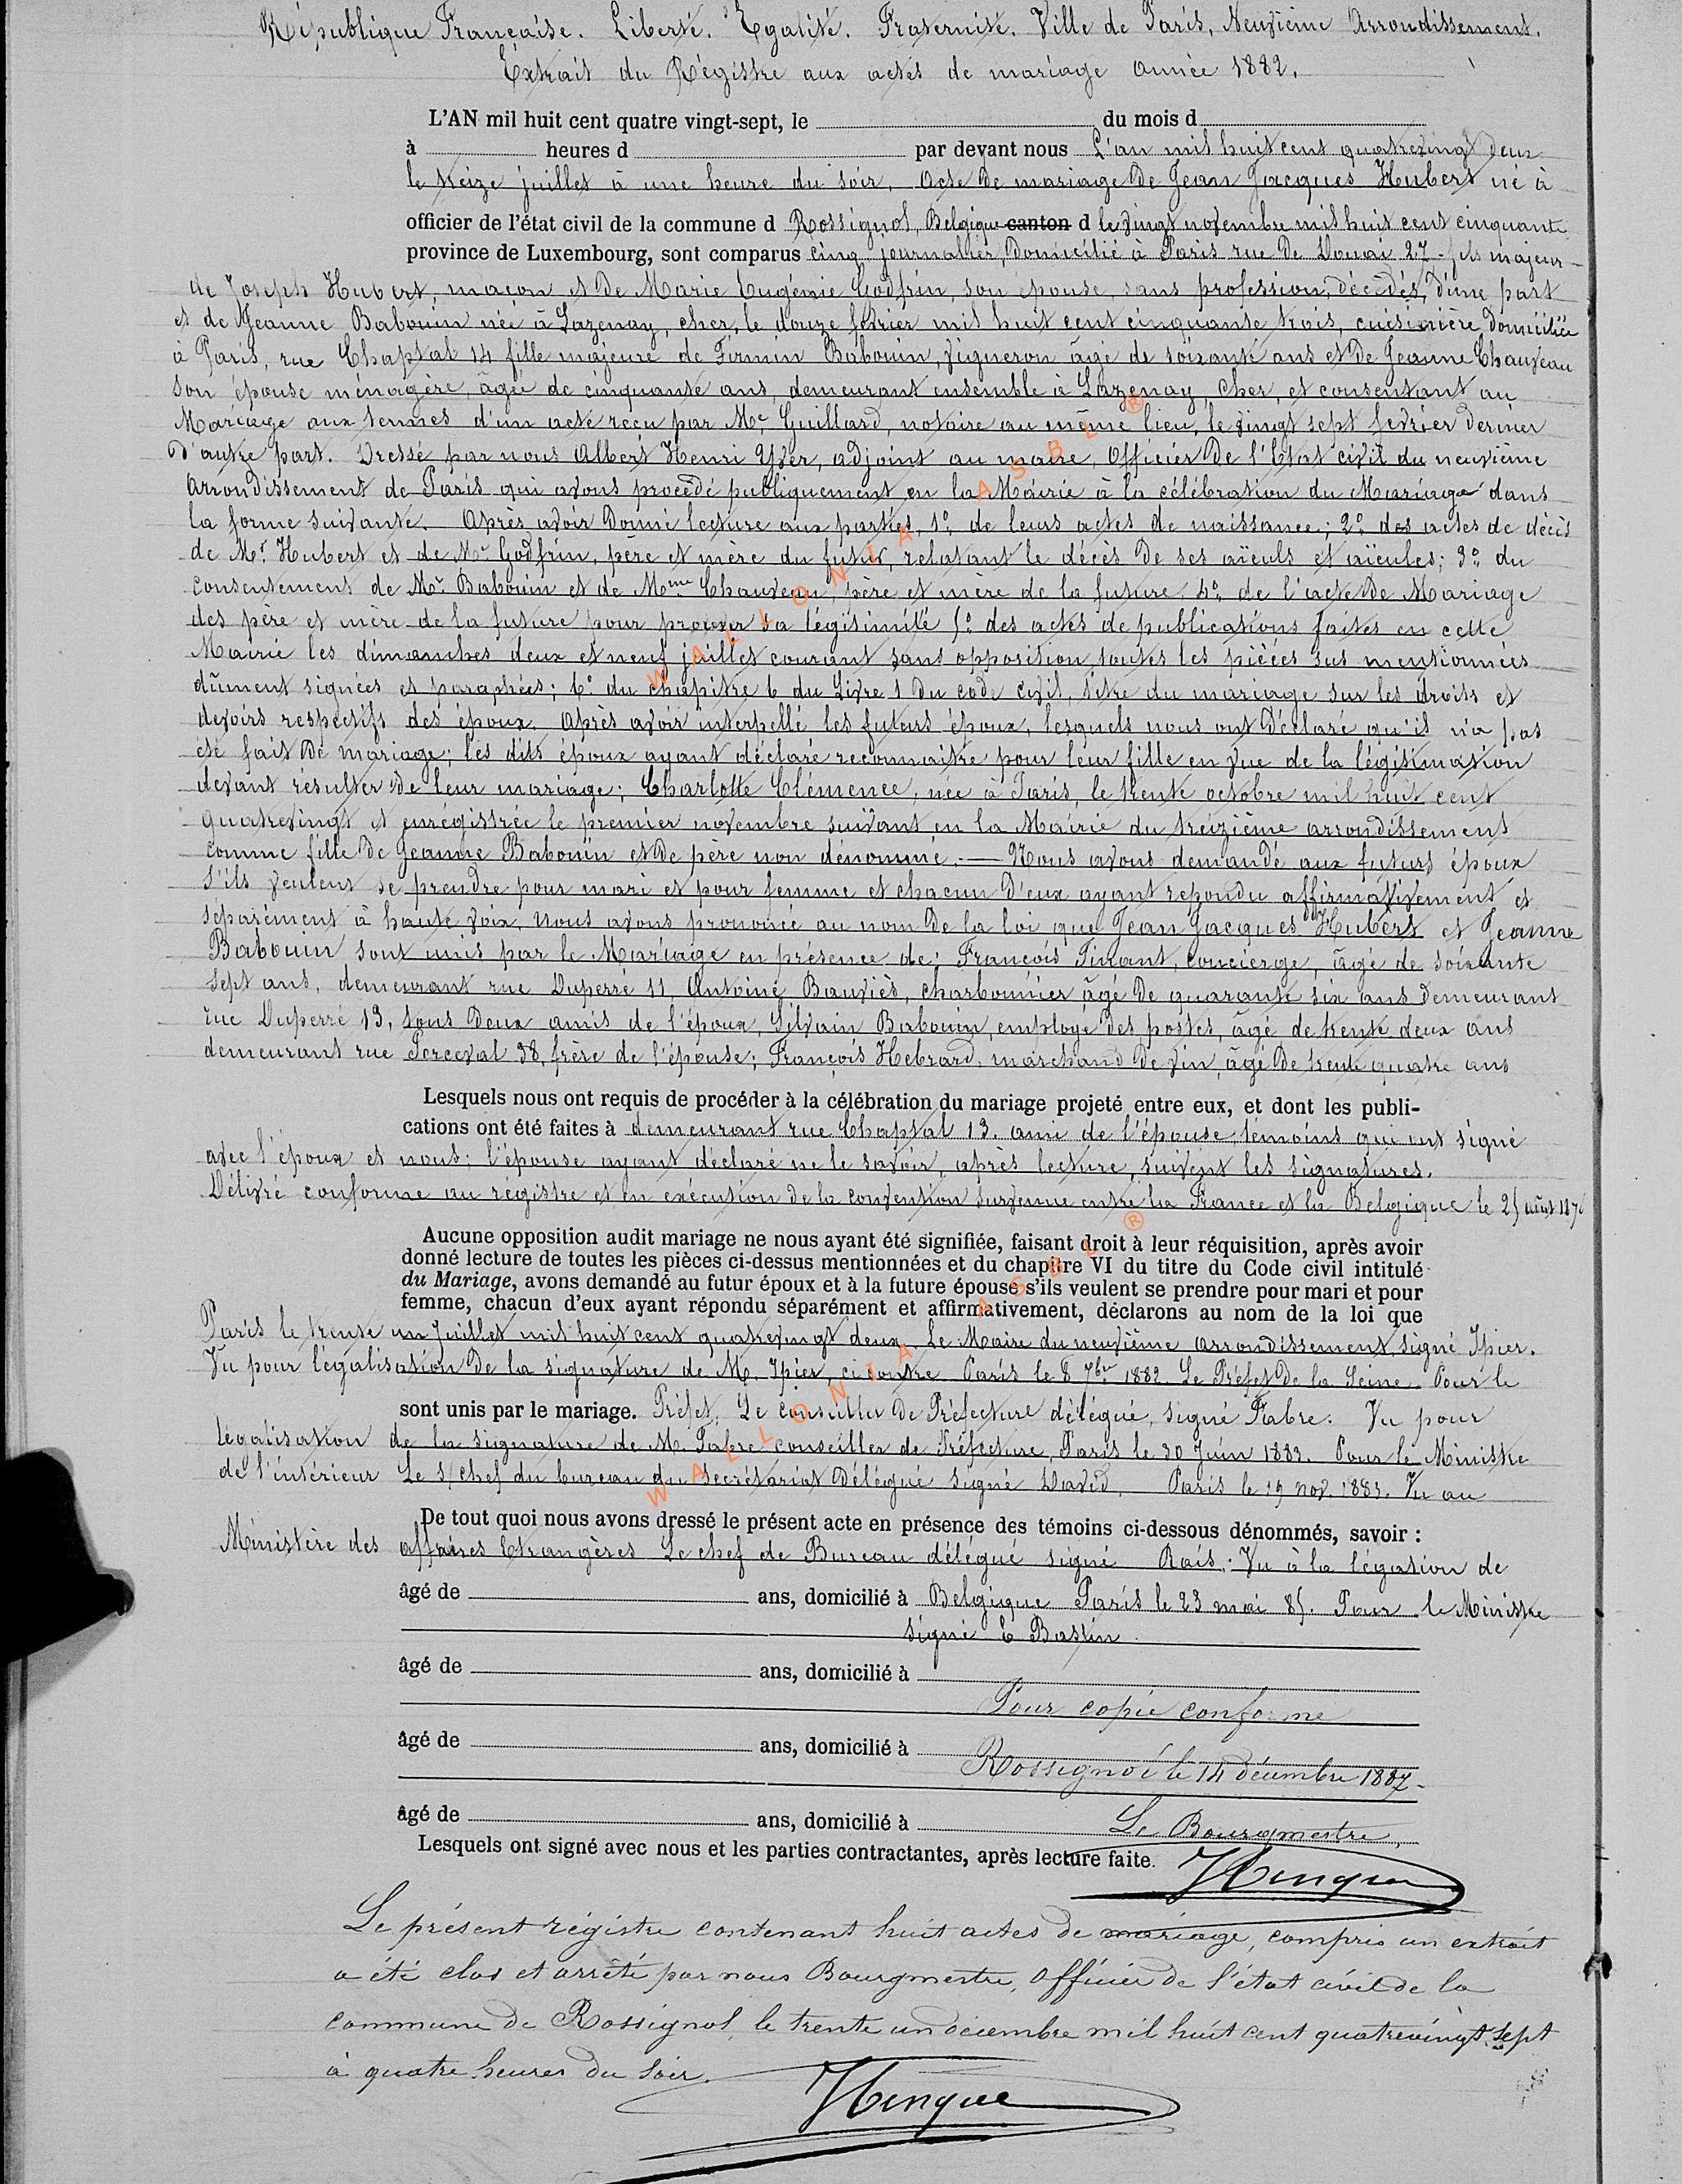 République Française. Liberté. Egalité. Fraternité. Ville de Paris, Neuvième Arrondissement.
Extrait du Régistre aux actes de mariage année 1882.
L'AN mil huit cent quatre vingt-sept, le du mois d
à heures d par devant nous L'an mil huit cent quatrevingt deux
le treize juillet à une heure du soir. Acte de mariage de Jean Jacques Hubert né à
officier de l'état civil de la commune d Rossignol, Belgique canton d le vingt novembre mil huit cent cinquante
province de Luxembourg, sont comparus cinq, journalier, domicilié à Paris rue de Douai 27. fils majeur
de Joseph Hubert, maçon et de Marie Eugénie Godfrin, son épouse, sans profession, décédés, d'une part
et de Jeanne Babouin née à Lazenay, cher, le douze février mil huit cent cinquante trois, cuisinière, domiciliée
à Paris, rue Chaptal 14 fille majeure de Firmin Babouin, vigneron âgé de soixante ans et de Jeanne Chauveau
son épouse ménagère, âgée de cinquante ans, demeurant ensemble à Lazenay, Cher, et consentant au
Mariage aux termes d'un acte reçu par Me Guillard, notaire au même lieu, le vingt sept février dernier
d'autre part. Dressé par nous Albert Henri Yver, adjoint au maire, Officier de l'Etat civil du neuvième
arrondissement de Paris qui avons procédé publiquement en la Mairie à la célébration du Mariage dans
la forme suivante. Après avoir donné lecture aux parties, 1o de leurs actes de naissance; 2o des actes de décès
de Mr Hubert et de Me Godfrin, père et mère du futur, relatant le décès de ses aïeuls et aïeules; 3o du
consentement de Mr Babouin et de Mme Chauveau, père et mère de la future; 4o de l'acte de Mariage
des père et mère de la future pour prouver sa légitimité 5o des actes de publications faites en cette
Mairie les dimanches deux et neuf juillet courant sans opposition, toutes les pièces sus mentionnées
dûment signées et paraphées; 6o du chapitre 6 du Livre 1 du code civil, titre du mariage sur les droits et
devoirs respectifs des époux. Après avoir interpellé les futurs époux, lesquels nous ont déclaré qu'il n'a pas
été fait de mariage; les dits époux ayant déclaré reconnaitre pour leur fille en vue de la légitimation
devant résulter de leur mariage; Charlotte Clémence, née à Paris, le trente octobre mil huit cent
quatrevingt et enrégistrée le premier novembre suivant en la Mairie du treizième arrondissement
comme fille de Jeanne Babouin et de père non dénommé. — Nous avons demandé aux futurs époux
s'ils veulent se prendre pour mari et pour femme et chacun d'eux ayant repondu affirmativement et
séparément à haute voix, nous avons prononcé au nom de la loi que Jean Jacques Hubert et Jeanne
Babouin sont unis par le Mariage en présence de: François Tinant, concierge, âgé de soixante
sept ans, demeurant rue Duperré 11, Antoine Bauviès, charbonnier âgé de quarante six ans demeurant
rue Duperré 13, tous deux amis de l'époux, Silvain Babouin, employé des postes, âgé de trente deux ans
demeurant rue Perceval 38, frère de l'épouse; François Hebrard, marchand de vin, âgé de trente quatre ans
Lesquels nous ont requis de procéder à la célébration du mariage projeté entre eux, et dont les publi-
cations ont été faites à demeurant rue Chaptal 13. ami de l'épouse, témoins qui ont signé
avec l'époux et nous; l'épouse ayant déclaré ne le savoir, après lecture, suivent les signatures.
Délivré conforme au régistre et en exécution de la convention survenue entre la France et la Belgique le 25 août 1876
Aucune opposition audit mariage ne nous ayant été signifiée, faisant droit à leur réquisition, après avoir
donné lecture de toutes les pièces ci-dessus mentionnées et du chapitre VI du titre du Code civil intitulé
du Mariage, avons demandé au futur époux et à la future épouse s'ils veulent se prendre pour mari et pour
femme, chacun d'eux ayant répondu séparément et affirmativement, déclarons au nom de la loi que
Paris le trente un Juillet mil huit cent quatrevingt deux. Le Maire du neuvième arrondissement signé Ipier.
Vu pour légalisation de la signature de M. Ipier, ci contre Paris le 8 7bre 1882. Le Préfet de la Seine. Pour le
sont unis par le mariage. Préfet, Le Conseiller de Préfecture délégué, signé Fabre. Vu pour
légalisation de la signature de M. Fabre conseiller de Préfecture, Paris le 30 Juin 1883. Pour le Ministre
de l'intérieur Le S/chef du bureau du Secrétariat Délégué signé David. Paris le 19 nov. 1883. Vu au
De tout quoi nous avons dressé le présent acte en présence des témoins ci-dessous dénommés, savoir :
Ministère des affaires Etrangères Le chef de Bureau délégué signé Rais. Vu à la légation de
âgé de ans, domicilié à Belgique Paris le 23 mai 85. Pour le Ministre
signé E Bastin.
âgé de ans, domicilié à
Pour copie conforme
âgé de ans, domicilié à
Rossignol le 14 décembre 1887.
âgé de ans, domicilié à Le Bourgmestre,
Lesquels ont signé avec nous et les parties contractantes, après lecture faite.
Hinque
Le présent régistre contenant huit actes de mariage, compris un extrait
a été clos et arrêté par nous Bourgmestre, Officier de l'état civil de la
commune de Rossignol, le trente un décembre mil huit cent quatrevingt sept
à quatre heures du soir.
Hinque
WALLONIA ASBL ®
WALLONIA ASBL ®